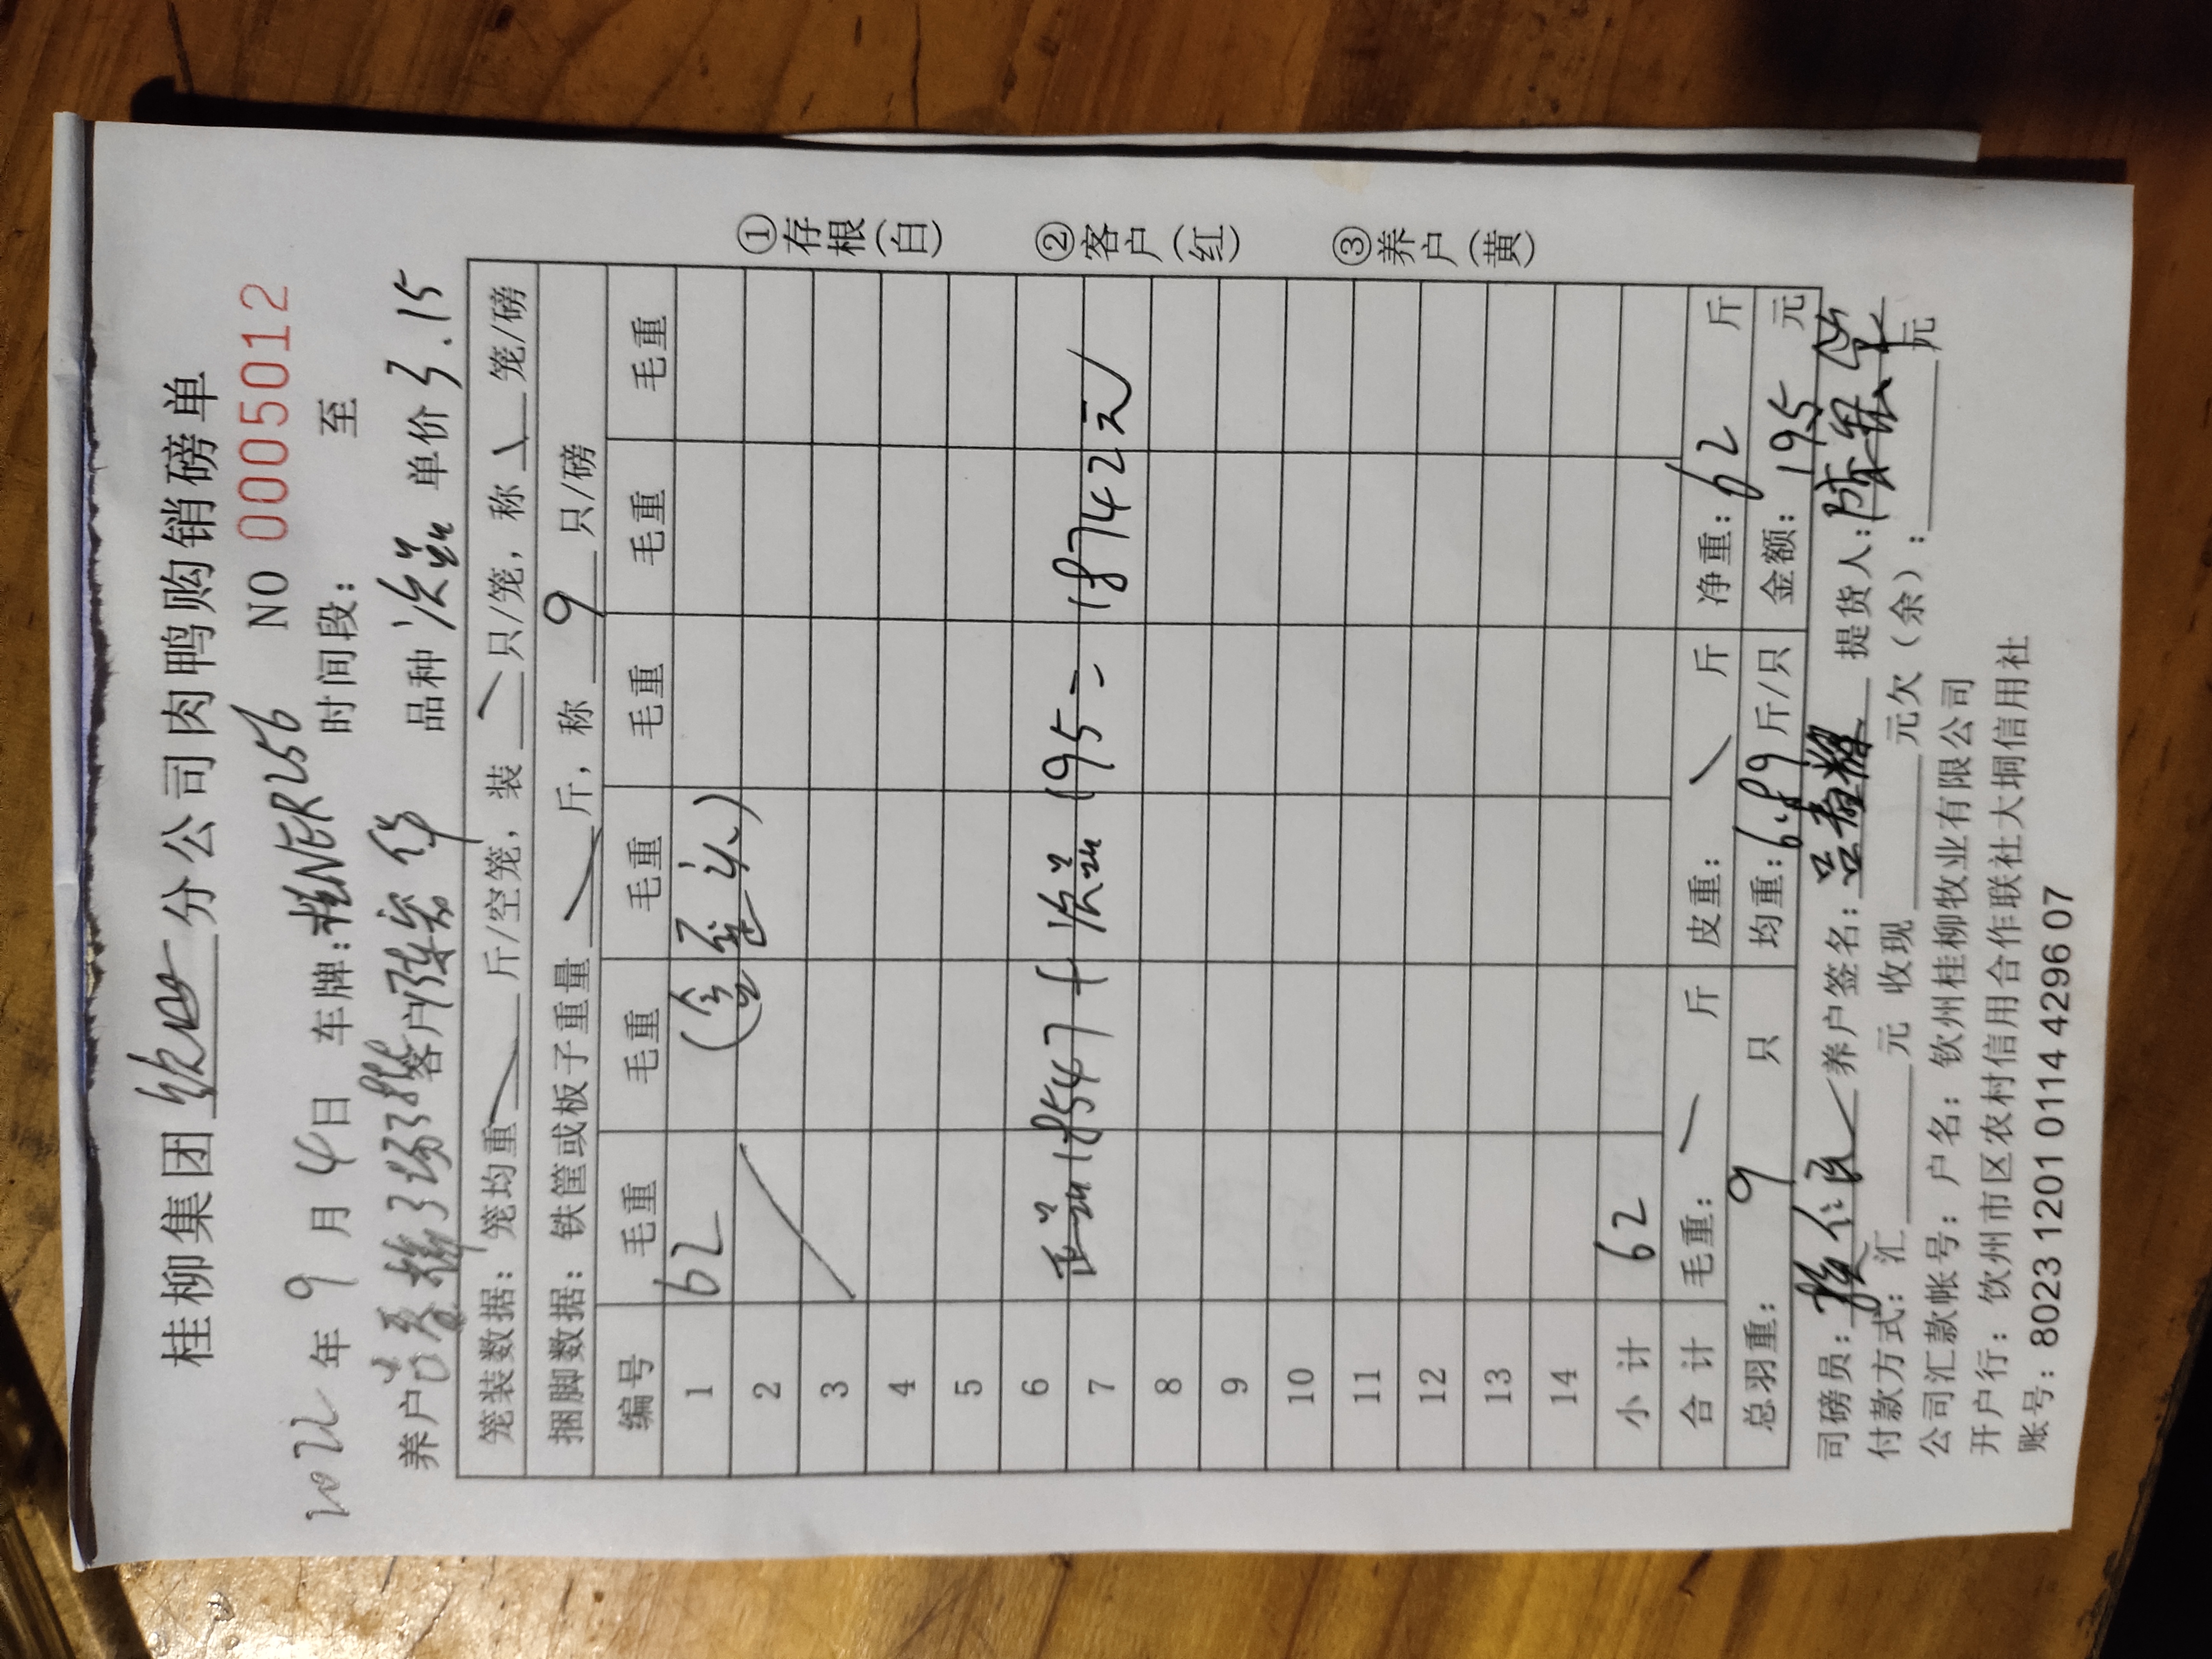 桂柳集团 钦州 分公司肉鸭购销磅单
NO 0005012
2022 年 9 月 4 日 车牌:桂NER256 时间段: 至
养户 客户 陈宏华 品种 次品 单价 3.15
笼装数据: 笼均重 斤/空笼, 装 只/笼, 称 笼/磅
捆脚数据: 铁筐或板子重量 斤, 称 9 只/磅
编号 毛重 毛重 毛重 毛重 毛重 毛重
1 62 (含歪头)
2
3
4
5
6
7 正品18547+次品195=18742元
8
9
10
11
12
13
14
小计 62
合计 毛重: 斤 皮重: 斤 净重: 62 斤
总羽重: 9 只 均重: 6.89 斤/只 金额: 195 元
司磅员: 养户签名: 提货人: 陈宏华
付款方式: 汇 元 收现 元欠(余): 元
公司汇款帐号: 户名: 钦州桂柳牧业有限公司
开户行: 钦州市区农村信用合作联社大垌信用社
账号: 8023 1201 0114 4296 07
①存根(白)
②客户(红)
③养户(黄)